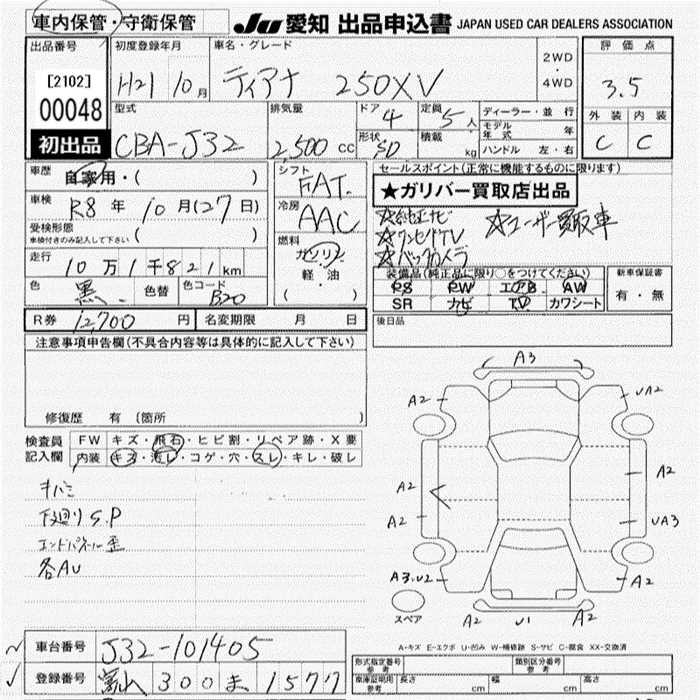 車内保管・守衛保管 JU 愛知 出品申込書 JAPAN USED CAR DEALERS ASSOCIATION
出品番号 初度登録年月 車名・グレード 2WD・4WD 評価点
[2102] H21 10月 ティアナ 250XV 3.5
00048
型式 排気量 ドア 4 定員 5人 ディーラー・並行 外装 内装
初出品 CBA-J32 2,500 cc 形状 SD 積載 kg モデル年式 年 C C
ハンドル 左・右
車歴 自家用・( ) シフト FAT. セールスポイント(正常に機能するものに限ります)
★ガリバー買取店出品
車検 R8年 10月(27日) 冷房 AAC ☆純正ナビ ☆ユーザー買取車
受検形態 ( ) ☆ワンセグTV
車検付きのみ記入して下さい 燃料 ガソリン ☆バックカメラ
走行 10万1千821km 軽・油
色 黒 色替 色コード B20 ( )
装備品(純正品に限り○をつけてください) 新車保証書
PS PW エアB AW 有・無
SR ナビ TV カワシート
R券 12,700円 名変期限 月 日 後日品
注意事項申告欄(不具合内容等は具体的に記入して下さい)
修復歴 有 (箇所 )
検査員 FW キズ・飛石・ヒビ割・リペア跡・X要
記入欄 内装 キズ・汚レ・コゲ・穴・スレ・キレ・破レ
キバミ
下廻りS.P
エンドパネル歪
各AU
A3
A2 UA2
A2 A2
A2 UA3
A3.U2 A2
スペア A2 U1 A2
車台番号 J32-101405
A-キズ E-エクボ U-凹み W-補修跡 S-サビ C-腐食 XX-交換済
登録番号 富山 300 ま 1577
形式指定番号 参考 類別区分番号 参考
車庫証明用 参考 長さ cm 幅 cm 高さ cm